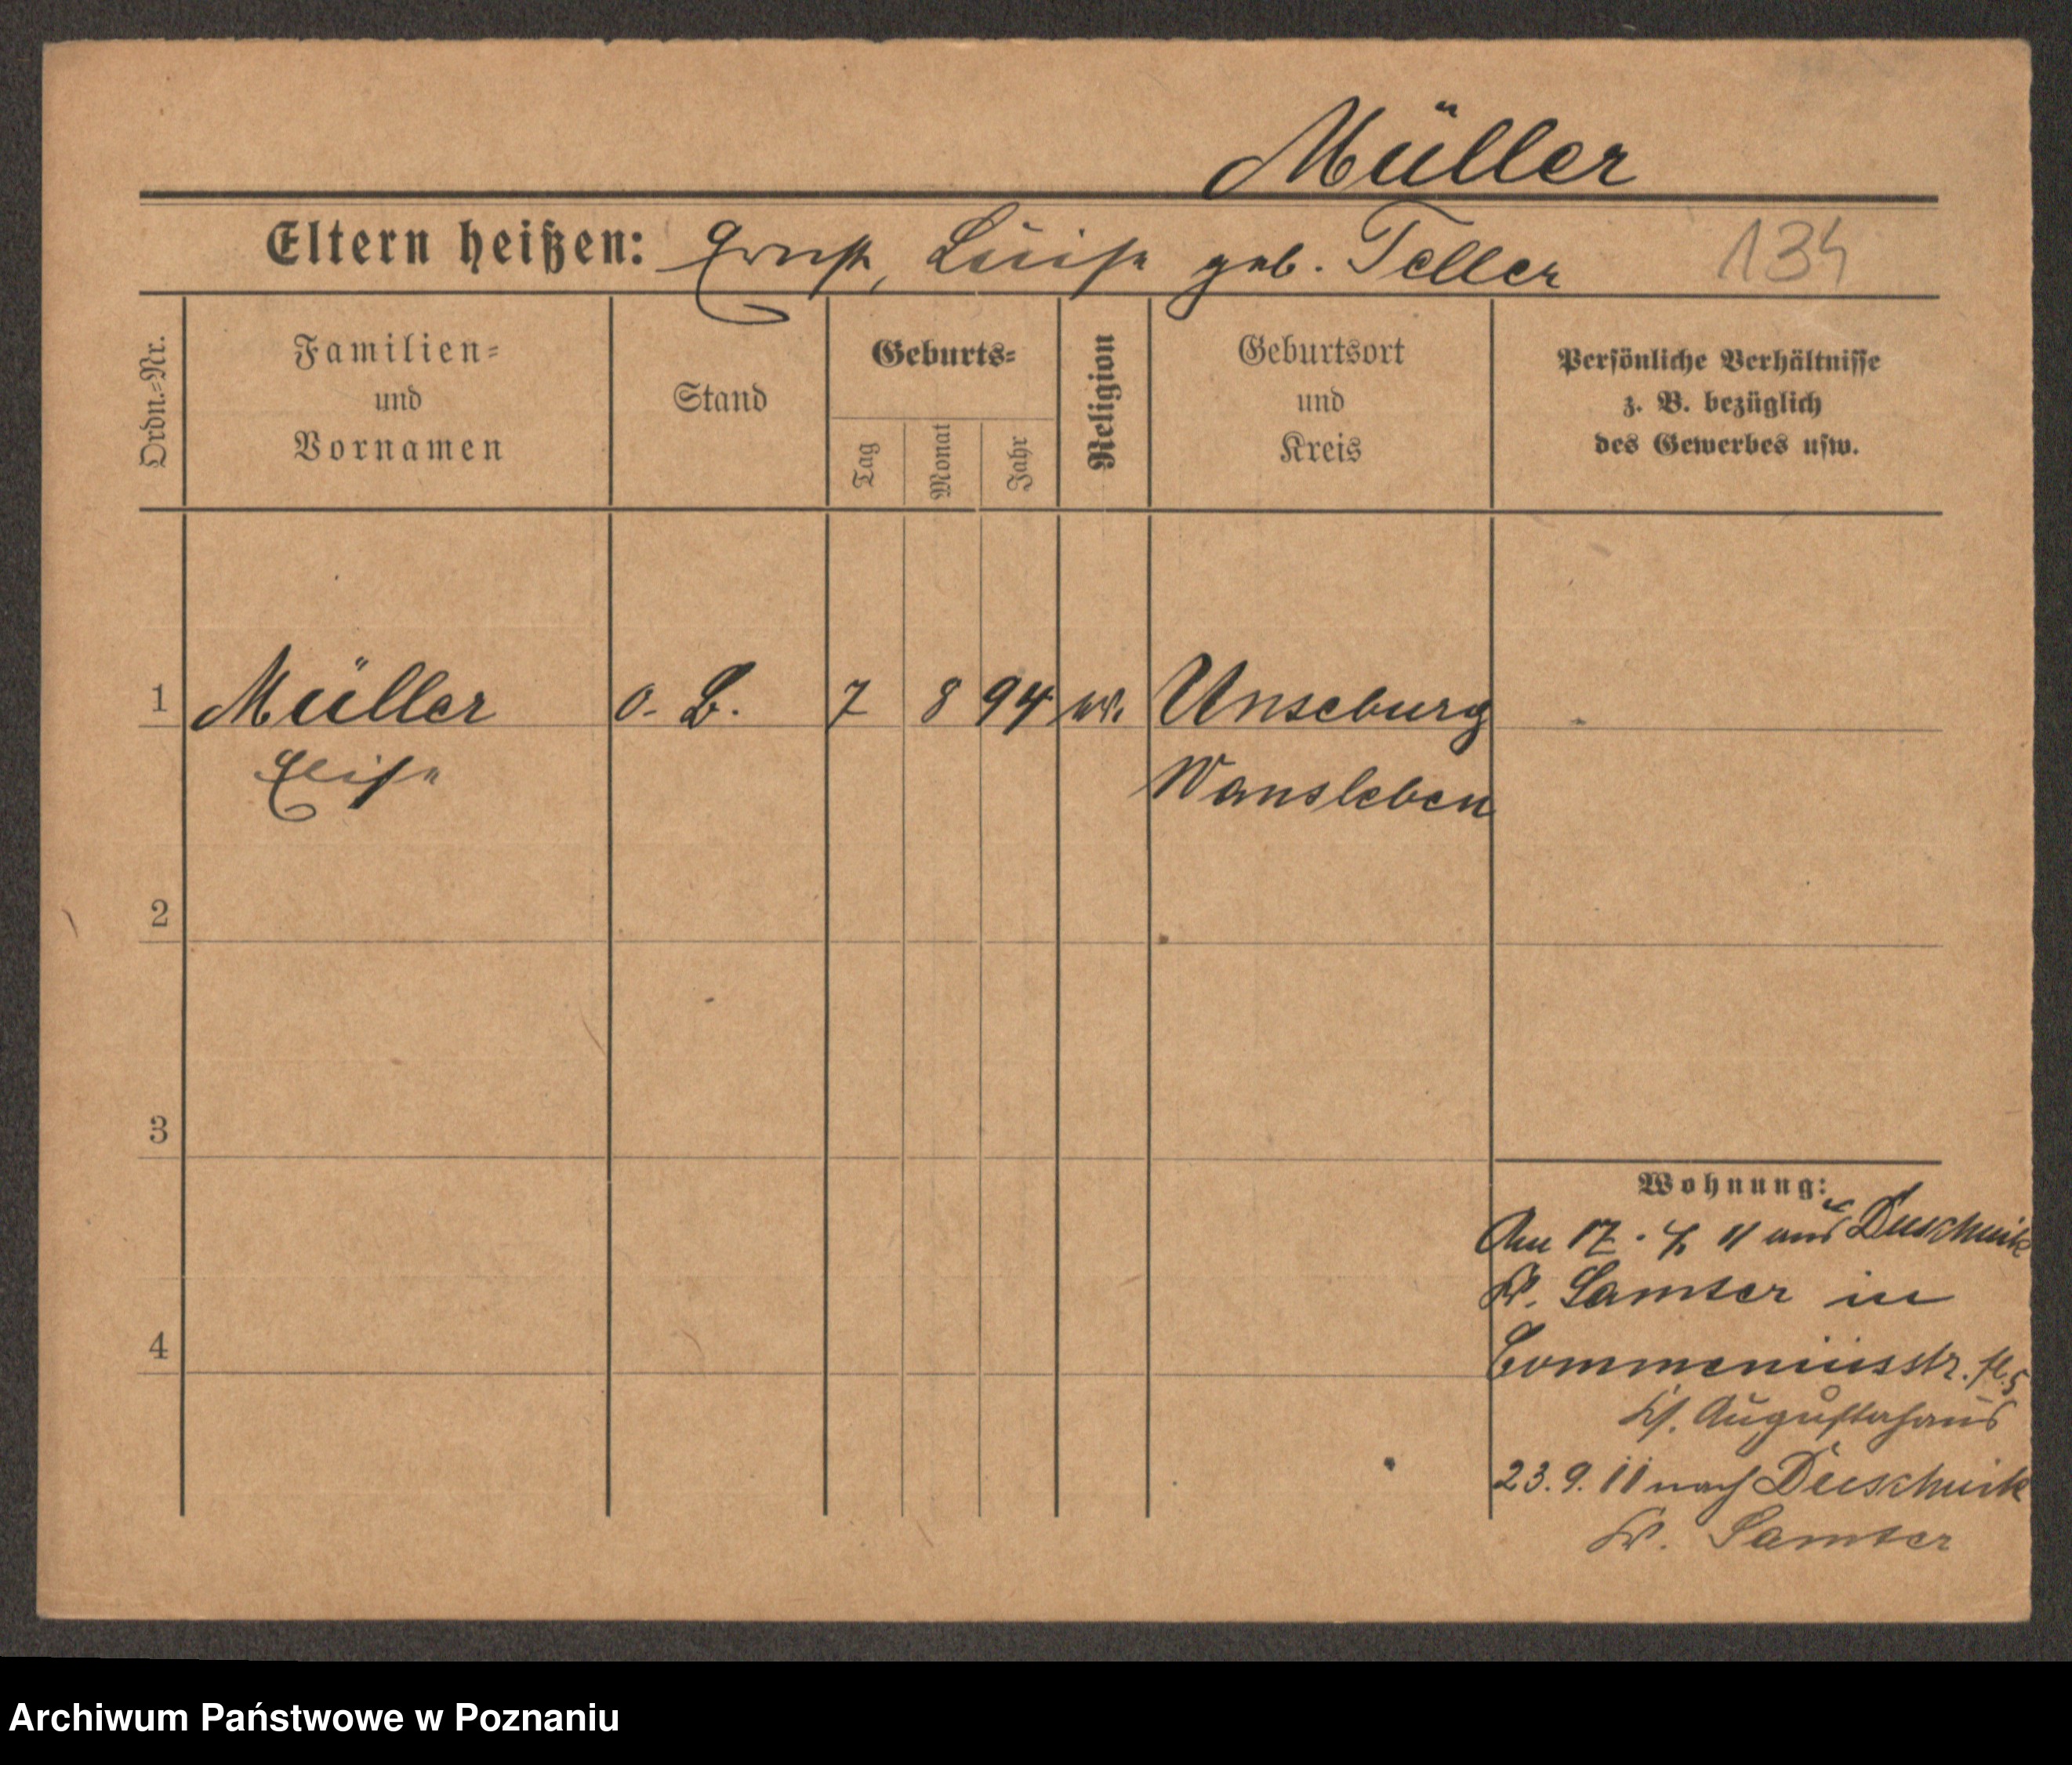 Müller
Eltern heißen: Ernst, Luise geb. Teller 134
Ordn.=Nr.
Familien=
und
Vornamen
Stand
Geburts=
Tag
Monat
Jahr
Religion
Geburtsort
und
Kreis
Persönliche Verhältnisse
z. B. bezüglich
des Gewerbes usw.
1 Müller o. B. 7 8 94 ev. Unseburg
Elise Wansleben
2
3
4
Wohnung:
Am 17. 7. 11 aus Duschnik
Kr. Samter in
Commeniusstr. 5
Augustahaus
23. 9. 11 nach Duschnik
Kr. Samter
Archiwum Państwowe w Poznaniu